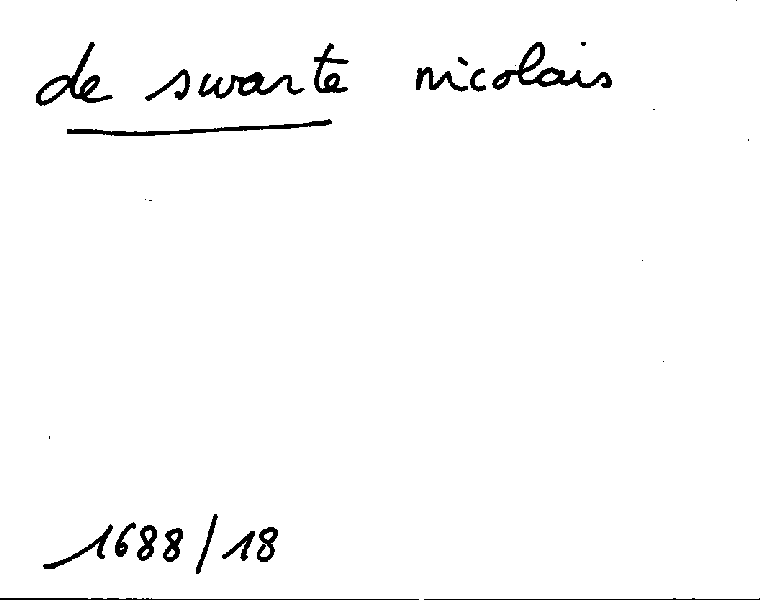 de swarte nicolais
1688/18